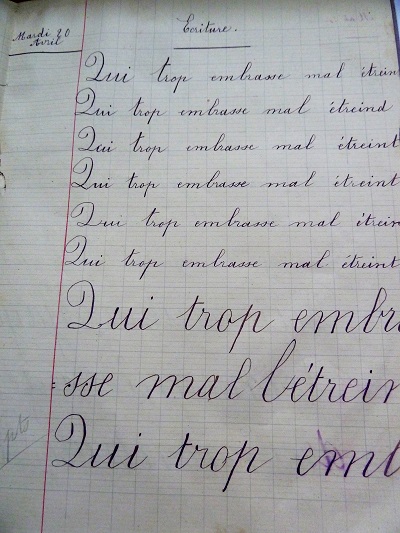 Mardi 20
Avril
Ecriture.
Qui trop embrasse mal étrein
Qui trop embrasse mal étreind
Qui trop embrasse mal étreint
Qui trop embrasse mal étreint
Qui trop embrasse mal étrein
Qui trop embrasse mal étreint
Qui trop embra
sse mal l'étrein
Qui trop emb